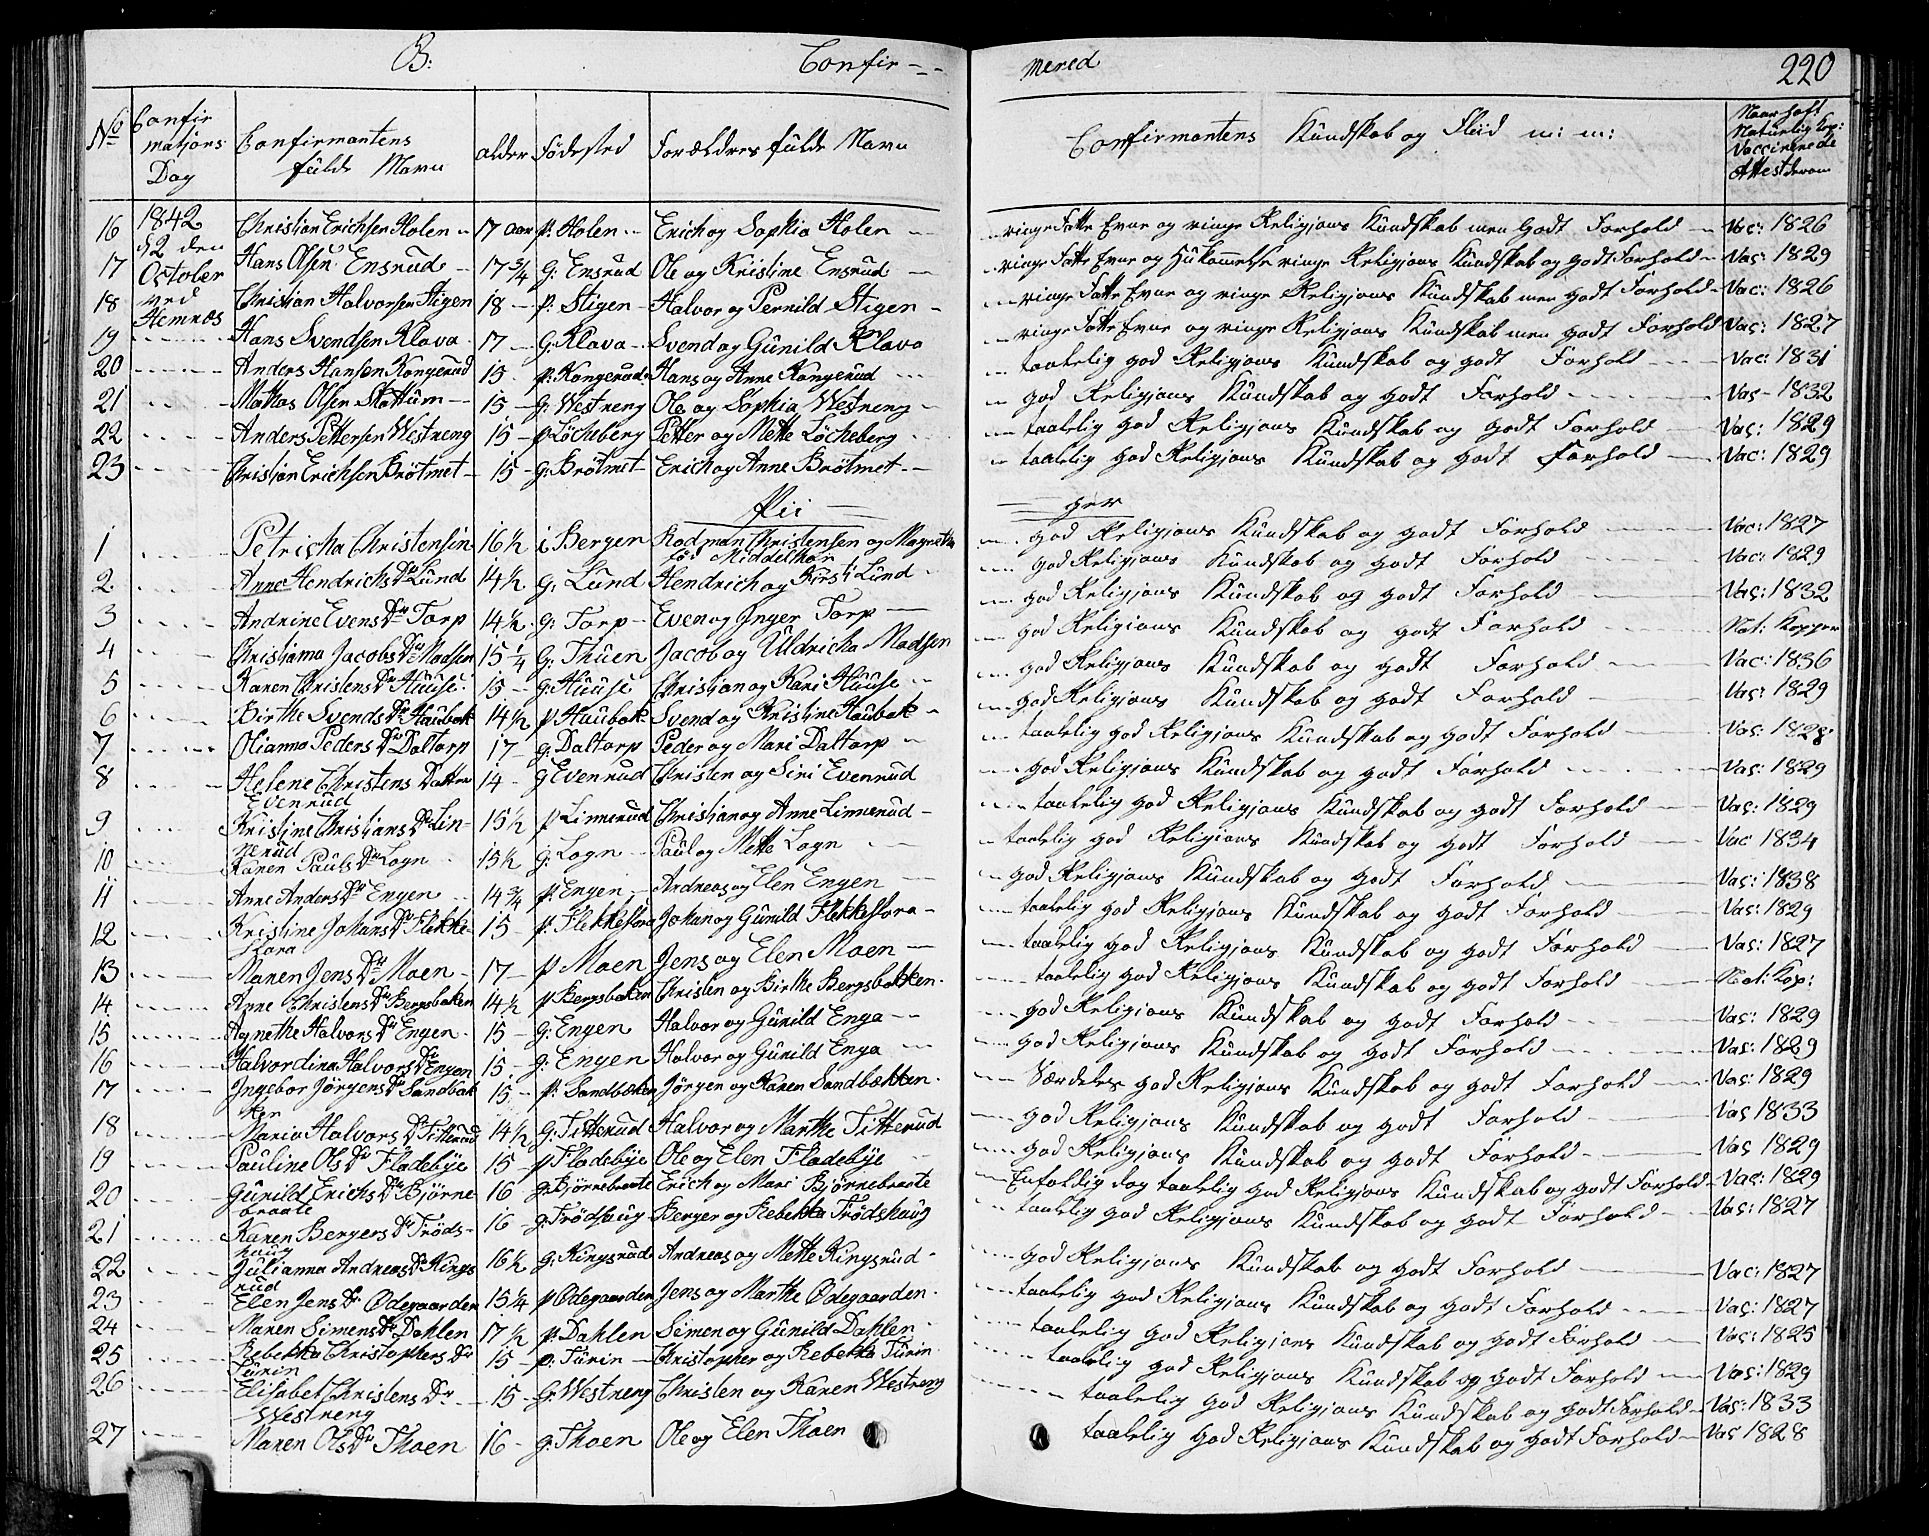 B: Confir-- mered 220
No Confirmatjons Dag Confirmantens fulde Navn alder Födested Forældres fulde Navn Confirmantens Kundskab og Flid m: m: Naar haft Naturlig Kop: Vaccinerede Attest derom
16 1842 Christian Erichsen Holen 17 aar p. Holen Erich og Sophia Holen ringe Fatte Evne og ringe Religjons Kundskab men Godt Forhold Vac: 1826
17 den 2 October Hans Olsen Ensrud 17 3/4 G: Ensrud Ole og Kristine Ensrud ringe Fatte Evne og Hukommelse ringe Religjons Kundskab og godt Forhold Vac: 1829
18 ved Christian Halvorsen Stigen 18 p: Stigen Halvor og Pernild Stigen ringe Fatte Evne og ringe Religjons Kundskab men godt Forhold Vac: 1826
19 Hemnæs Hans Svendsen Klava 17 G. Klava Svend og Gunild Klava ringe Fatte Evne og ringe Religjons Kundskab men godt Forhold Vac: 1827
20 Anders Hansen Kongerud 15 p: Kongerud Hans og Anne Kongerud taalelig god Religjons Kundskab og godt Forhold Vac: 1831
21 Mathias Olsen Skottum 15 G: Westreng Ole og Sophia Westreng god Religjons Kundskab og godt Forhold Vac 1832
22 Anders Pettersen Westreng 15 p Löcheberg Petter og Mette Löcheberg taalelig god Religjons Kundskab og godt Forhold Vac: 1829
23 Christian Erichsen Brötmet 15 g: Brötmet Erich og Anne Brötmet taalelig god Religjons Kundskab og godt Forhold Vac: 1829
Pii ger
1 Petricha Christensin 16 1/2 i Bergen Rodman Christensen og Magretha föd Middelthon god Religjons Kundskab og godt Forhold Vac: 1827
2 Anne Hendrichs Dr Lund 14 1/2 g: Lund Hendrich og Kirsti Lund god Religjons Kundskab og godt Forhold Vac: 1829
3 Andrine Evens Dr Torp 14 1/2 g: Torp Even og Inger Torp god Religjons Kundskab og godt Forhold Vac: 1832
4 Christiana Jacobs Dr Madsen 15 1/4 G: Thuen Jacob og Uldricha Madsen god Religions Kundskab og godt Forhold Nat: Kopper
5 Karen Christens Dr Huuse 15 g: Huuse Christjan og Kari Huuse god Religjons Kundskab og godt Forhold Vac: 1836
6 Birthe Svends Dr Haubak 14 1/2 p Haubak Svend og Kristine Haubak god Religjons Kundskab og godt Forhold Vac: 1829
7 Olianna Peders Dr Daltorp 17 g: Daltorp Peder og Mari Daltorp taalelig god Religjons Kundskab og godt Forhold Vac: 1828
8 Helene Christens Datter Evenrud 14 g Evenrud Christen og Siri Evenrud god Religjons Kundskab og godt Forhold Vac: 1829
9 Kristine Christjans Dr Linnerud 15 1/2 p Linnerud Christjan og Anne Linnerud taalelig god Religjons Kundskab og godt Forhold Vac: 1829
10 Karen Pauls Dr Logn 15 1/2 g: Logn Paul og Mette Logn taalelig god Religions Kundskab og godt Forhold Vac 1834
11 Anne Anders Dr Engen 14 3/4 p: Engen Andreas og Elen Engen god Religjons Kundskab og godt Forhold Vac: 1838
12 Kristine Johans Dr Flekkeslora 15 p: Flekkeslora Johan og Gunild Flekkeslora taalelig god Religjons Kundskab og godt Forhold Vac: 1829
13 Maren Jens Dr Moen 17 p Moen Jens og Elen Moen taalelig god Religjons Kundskab og godt Forhold Vac: 1827
14 Anne Christens Dr Bergsbaken 14 1/2 p Bergsbaken Christen og Birthe Bergsbakken taalelig god Religjons Kundskab og godt Forhold Nat: Kop:
15 Agnethe Halvors Dr Engen 15 g: Engen Halvor og Gunild Enga god Religjons Kundskab og godt Forhold Vac: 1829
16 Halvordina Halvors Dr Engen 15 g: Engen Halvor og Gunild Enga god Religjons Kundskab og godt Forhold Vac: 1829
17 Ingebor Jörgens Dr Sandbakken 15 p: Sandbaken Jörgen og Karen Sandbækken Særdeles god Religjons Kundskab og godt Forhold Vac: 1829
18 Maria Halvors Dr Titterud 14 1/2 G: Titterud Halvor og Marthe Titterud god Religjons Kundskab og godt Forhold Vac 1833
19 Pauline Ols Dr Fladebye 15 p Fladebye Ole og Elen Fladebye god Religjons Kundskab og godt Forhold Vac 1829
20 Gunild Erichs Dr Bjørnebraate 16 g: Bjørnebraate Erich og Mari Bjørnebraate Enfoldig dog taalelig god Religjons Kundskab og godt Forhold Vac: 1829
21 Karen Bergers Dr Trödshaug 16 g: Trödshaug Berger og Rebekka Trödshaug taalelig god Religjons Kundskab og godt Forhold Vac: 1827
22 Julianna Andreas Dr Kingsrud 16 1/2 g: Kingsrud Andreas og Mette Kingsrud god Religjons Kundskab og godt Forhold Vac: 1827
23 Elen Jens Dr Ödegaarden 15 1/4 p Ödegaarden Jens og Marthe Ödegaarden taalelig god Religjons Kundskab og godt Forhold Vac: 1827
24 Maren Simens Dr Dahlen 17 1/2 p: Dahlen Simen og Gunild Dahlen taalelig god Religjons Kundskab og godt Forhold Vac: 1825
25 Rebekka Christophers Dr Turin 15 p: Turin Christopher og Rebekka Turin taalelig god Religjons Kundskab og godt Forhold Vac: 1829
26 Elisabet Christens Dr Westreng 15 G: Westreng Christen og Karen Westreng taalelig god Religjons Kundskab og godt Forhold Vac: 1833
27 Maren Ols Dr Thoen 16 g: Thoen Ole og Elen Thoen taalelig god Religjons Kundskab og godt Forhold Vac 1828